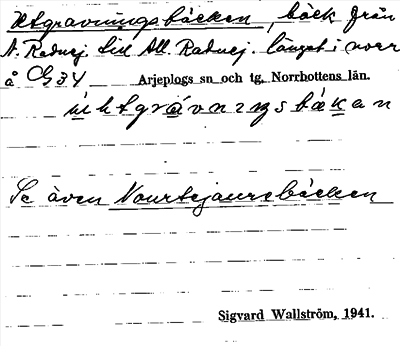 Utgravningsbäcken, bäck från
N. Radnej. till All. Radnej. längst i norr
å C34 Arjeplogs sn och tg, Norrbottens län.
ùtgrávnıŋsbäkən
Se även Nourtejaursbäcken
Sigvard Wallström, 1941.